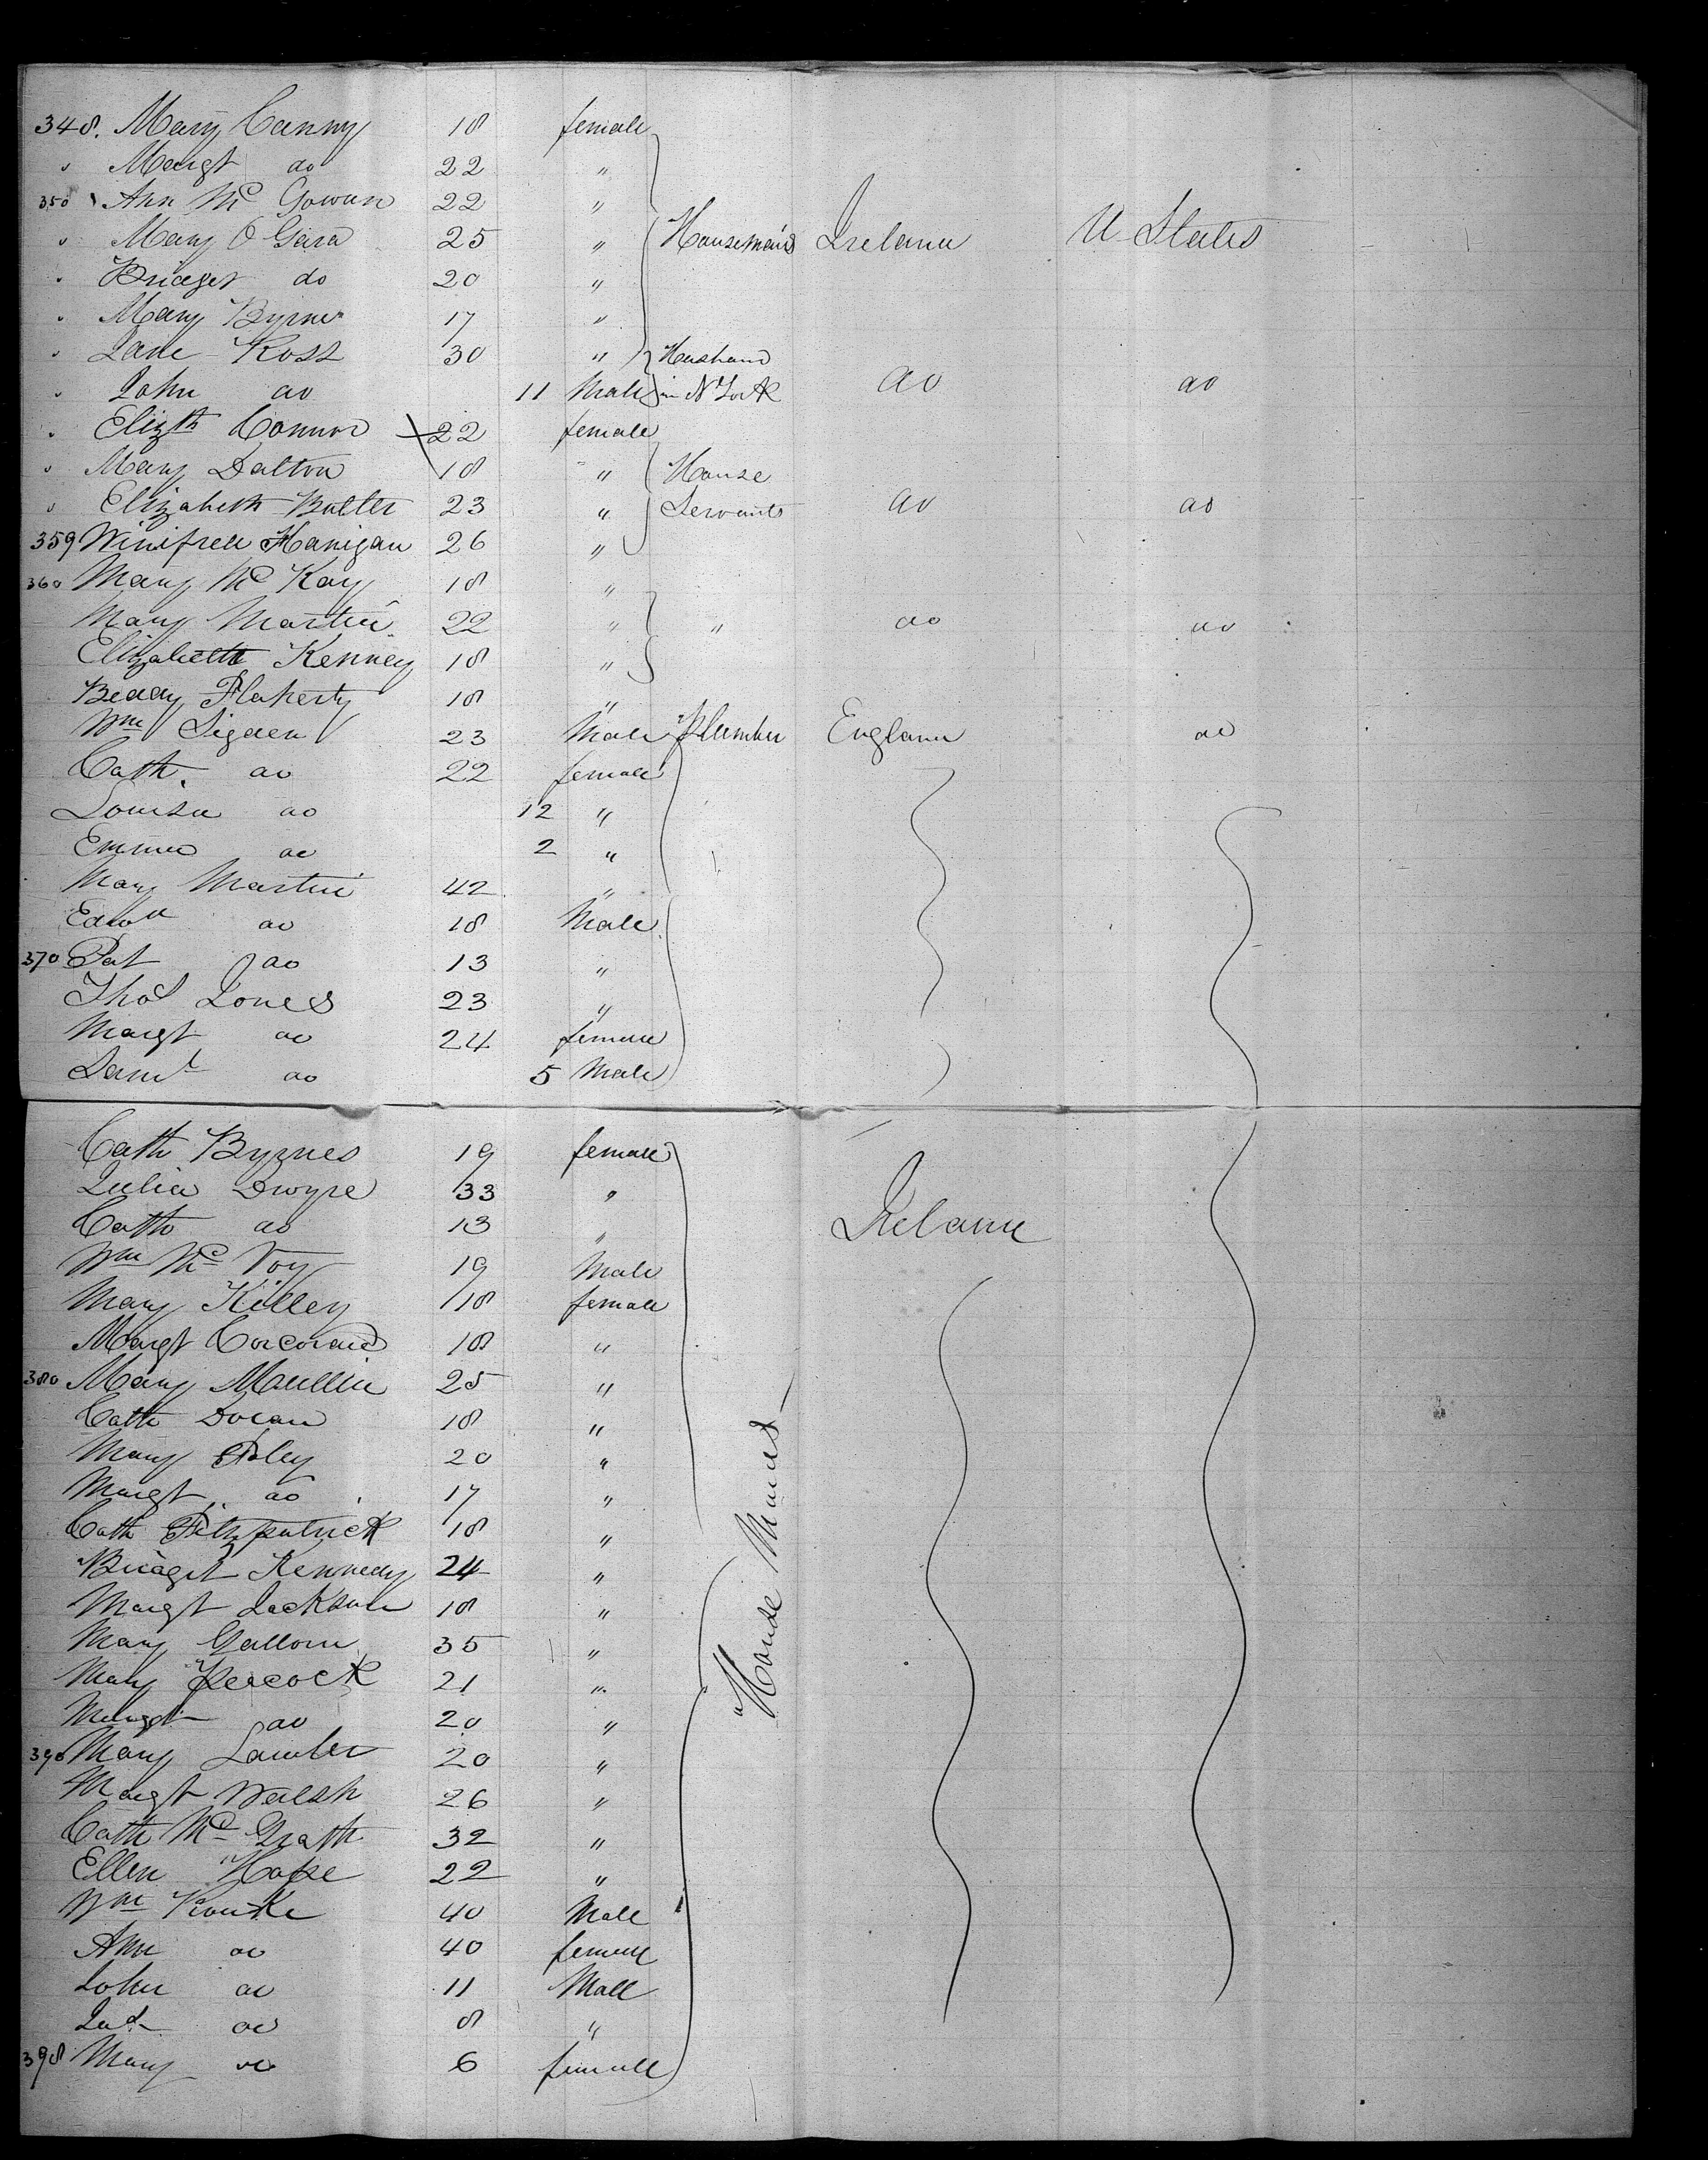 348. Mary Canny 18 female
" Margt do 22 "
350 Ann Mc Gowan 22 "
" Mary O Gara 25 " Housemaids Ireland U States
" Bridget do 20 "
" Mary Byrne 17 "
" Jane Ross 30 " Husband
" John do 11 Male in N York do do
" Elizth Connor 22 female
" Mary Dalton 18 " House
" Elizabeth Butler 23 " Servants do do
359 Winifred Hanigan 26 "
360 Mary Mc Kay 18 "
Mary Martin 22 " " do do
Elizabeth Kenney 18 "
Beday Flaherty 18 "
Wm Sigden 23 Male Plumber England do
Cath. do 22 female
Louisa do 12 "
Emma do 2 "
Mary Martin 42 "
Edwd do 18 Male
370 Pat do 13 "
Thos Jones 23 "
Margt do 24 female
Saml do 5 Male
Cath Byrnes 19 female
Julia Dwyre 33 "
Cath do 13 " Ireland
Wm Mc Voy 19 Male
Mary Killey 18 female
Margt Corcoran 18 "
380 Mary Mullin 25 "
Cath Doran 18 "
Mary Foley 20 "
Margt do 17 "
Cath Fitzpatrick 18 "
Bridget Kennedy 24 "
Margt Jackson 18 " House Maids
Mary Gallon 35 "
Mary Peacock 21 "
Margt do 20 "
390 Mary Lawler 20 "
Margt Walsh 26 "
Cath Mc Grath 32 "
Ellen Hope 22 "
Wm Rourke 40 Male
Ann do 40 female
John do 11 Male
do 8 "
398 Mary do 6 female